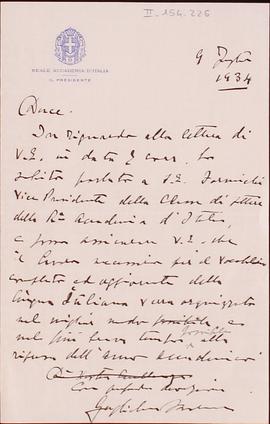 II-154.226
REALE ACCADEMIA D'ITALIA
IL PRESIDENTE
9
1934
Duce.
In riguardo alla lettera di
V.E. in data 8 corr. ho
subito parlato a S.E. Formichi
Vice Presidente della Classe di lettere
della Rle Accademia d'Italia,
e posso assicurare V.E. che
il lavoro necessario per il Vocabolario
completo ed aggiornato della
lingua Italiana verrà organizzato
nel miglior modo possibile, e
nel più breve tempo possibile alla
ripresa dell'anno accademico
Con profonda devozione
Guglielmo Marconi